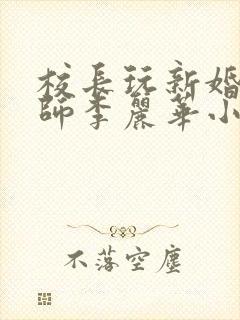 校長玩新婚
師李麗華小
不落空塵